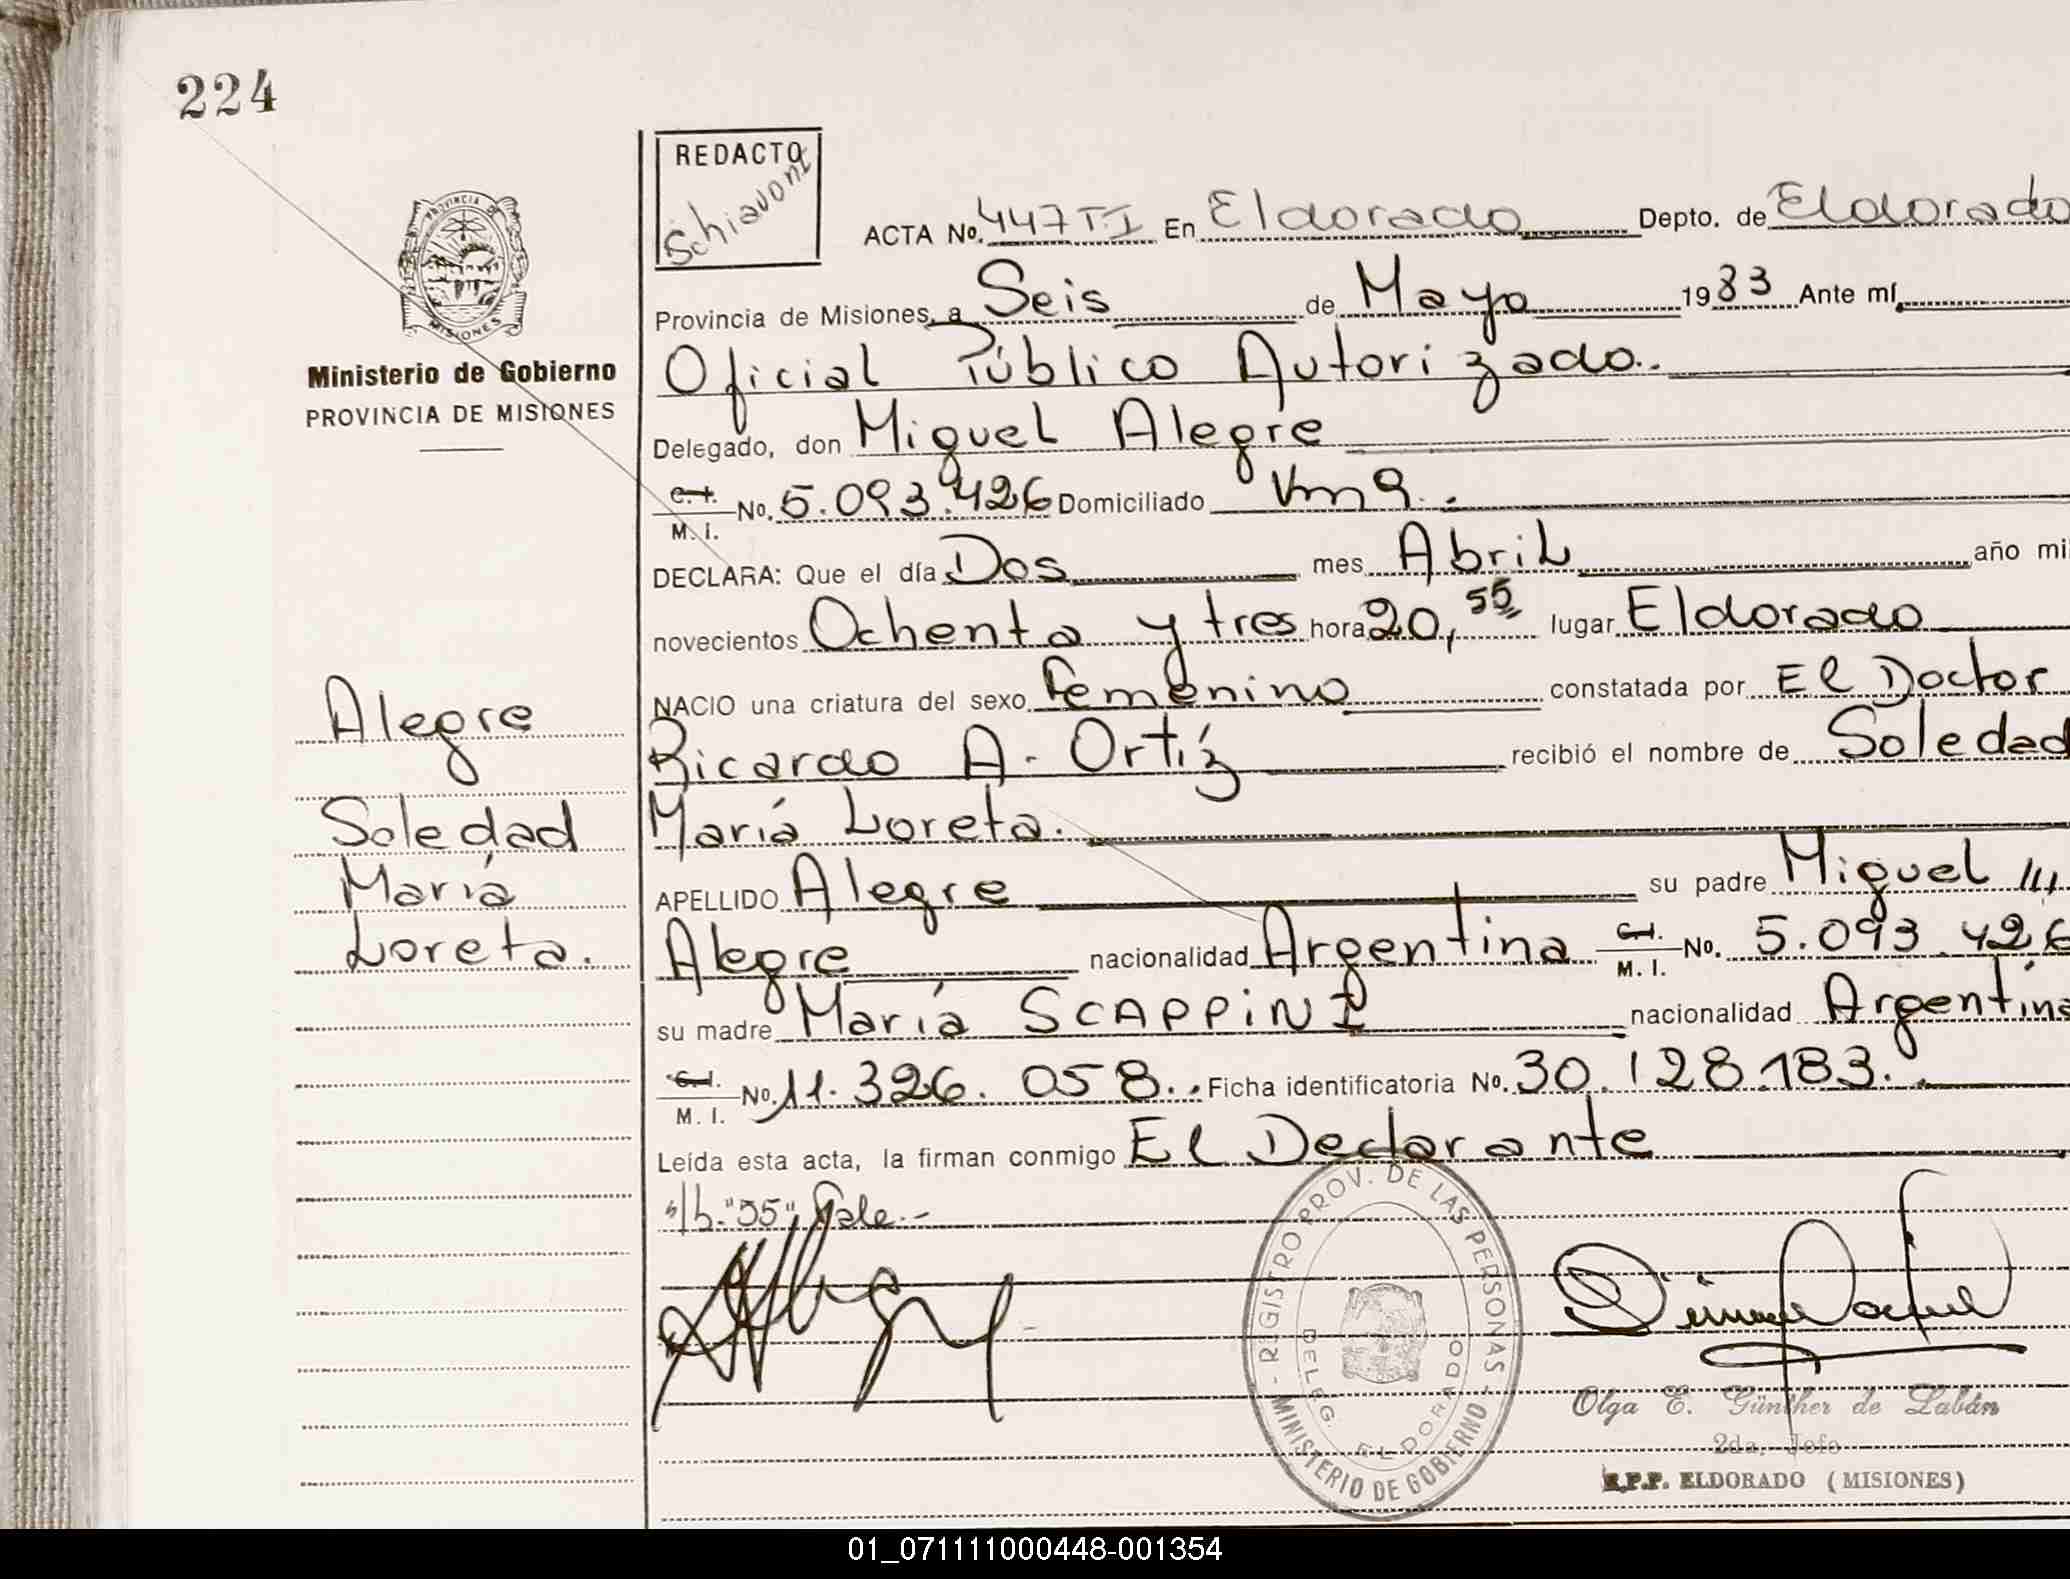 224
REDACTO
Schiavoni
ACTA No. 447 T.I En Eldorado Depto. de Eldorado
Provincia de Misiones, a Seis de Mayo 1983 Ante mí,
Oficial Público Autorizado.
Ministerio de Gobierno
PROVINCIA DE MISIONES
Delegado, don Miguel Alegre
C.I. M. I. No. 5.093.426 Domiciliado
DECLARA: Que el día Dos mes Abril año mi
novecientos Ochenta y tres hora 20,55 lugar Eldorado
NACIO una criatura del sexo femenino constatada por El Doctor
Ricardo A. Ortíz recibió el nombre de Soledad
María Loreta.
Alegre
Soledad
María
Loreta.
APELLIDO Alegre su padre Miguel
Alegre nacionalidad Argentina C.I. M. I. No. 5.093.426
su madre María SCAPPINI nacionalidad Argentina
C.I. M. I. No. 11.326.058. Ficha identificatoria No. 30.128.183.
Leída esta acta, la firman conmigo El Declarante
s/b. "55" Vale.-
REGISTRO PROV. DE LAS PERSONAS
DELEG. ELDORADO
MINISTERIO DE GOBIERNO
Olga E. Günther de Labán
2da. Jefe
R.P.P. ELDORADO (MISIONES)
01_071111000448-001354